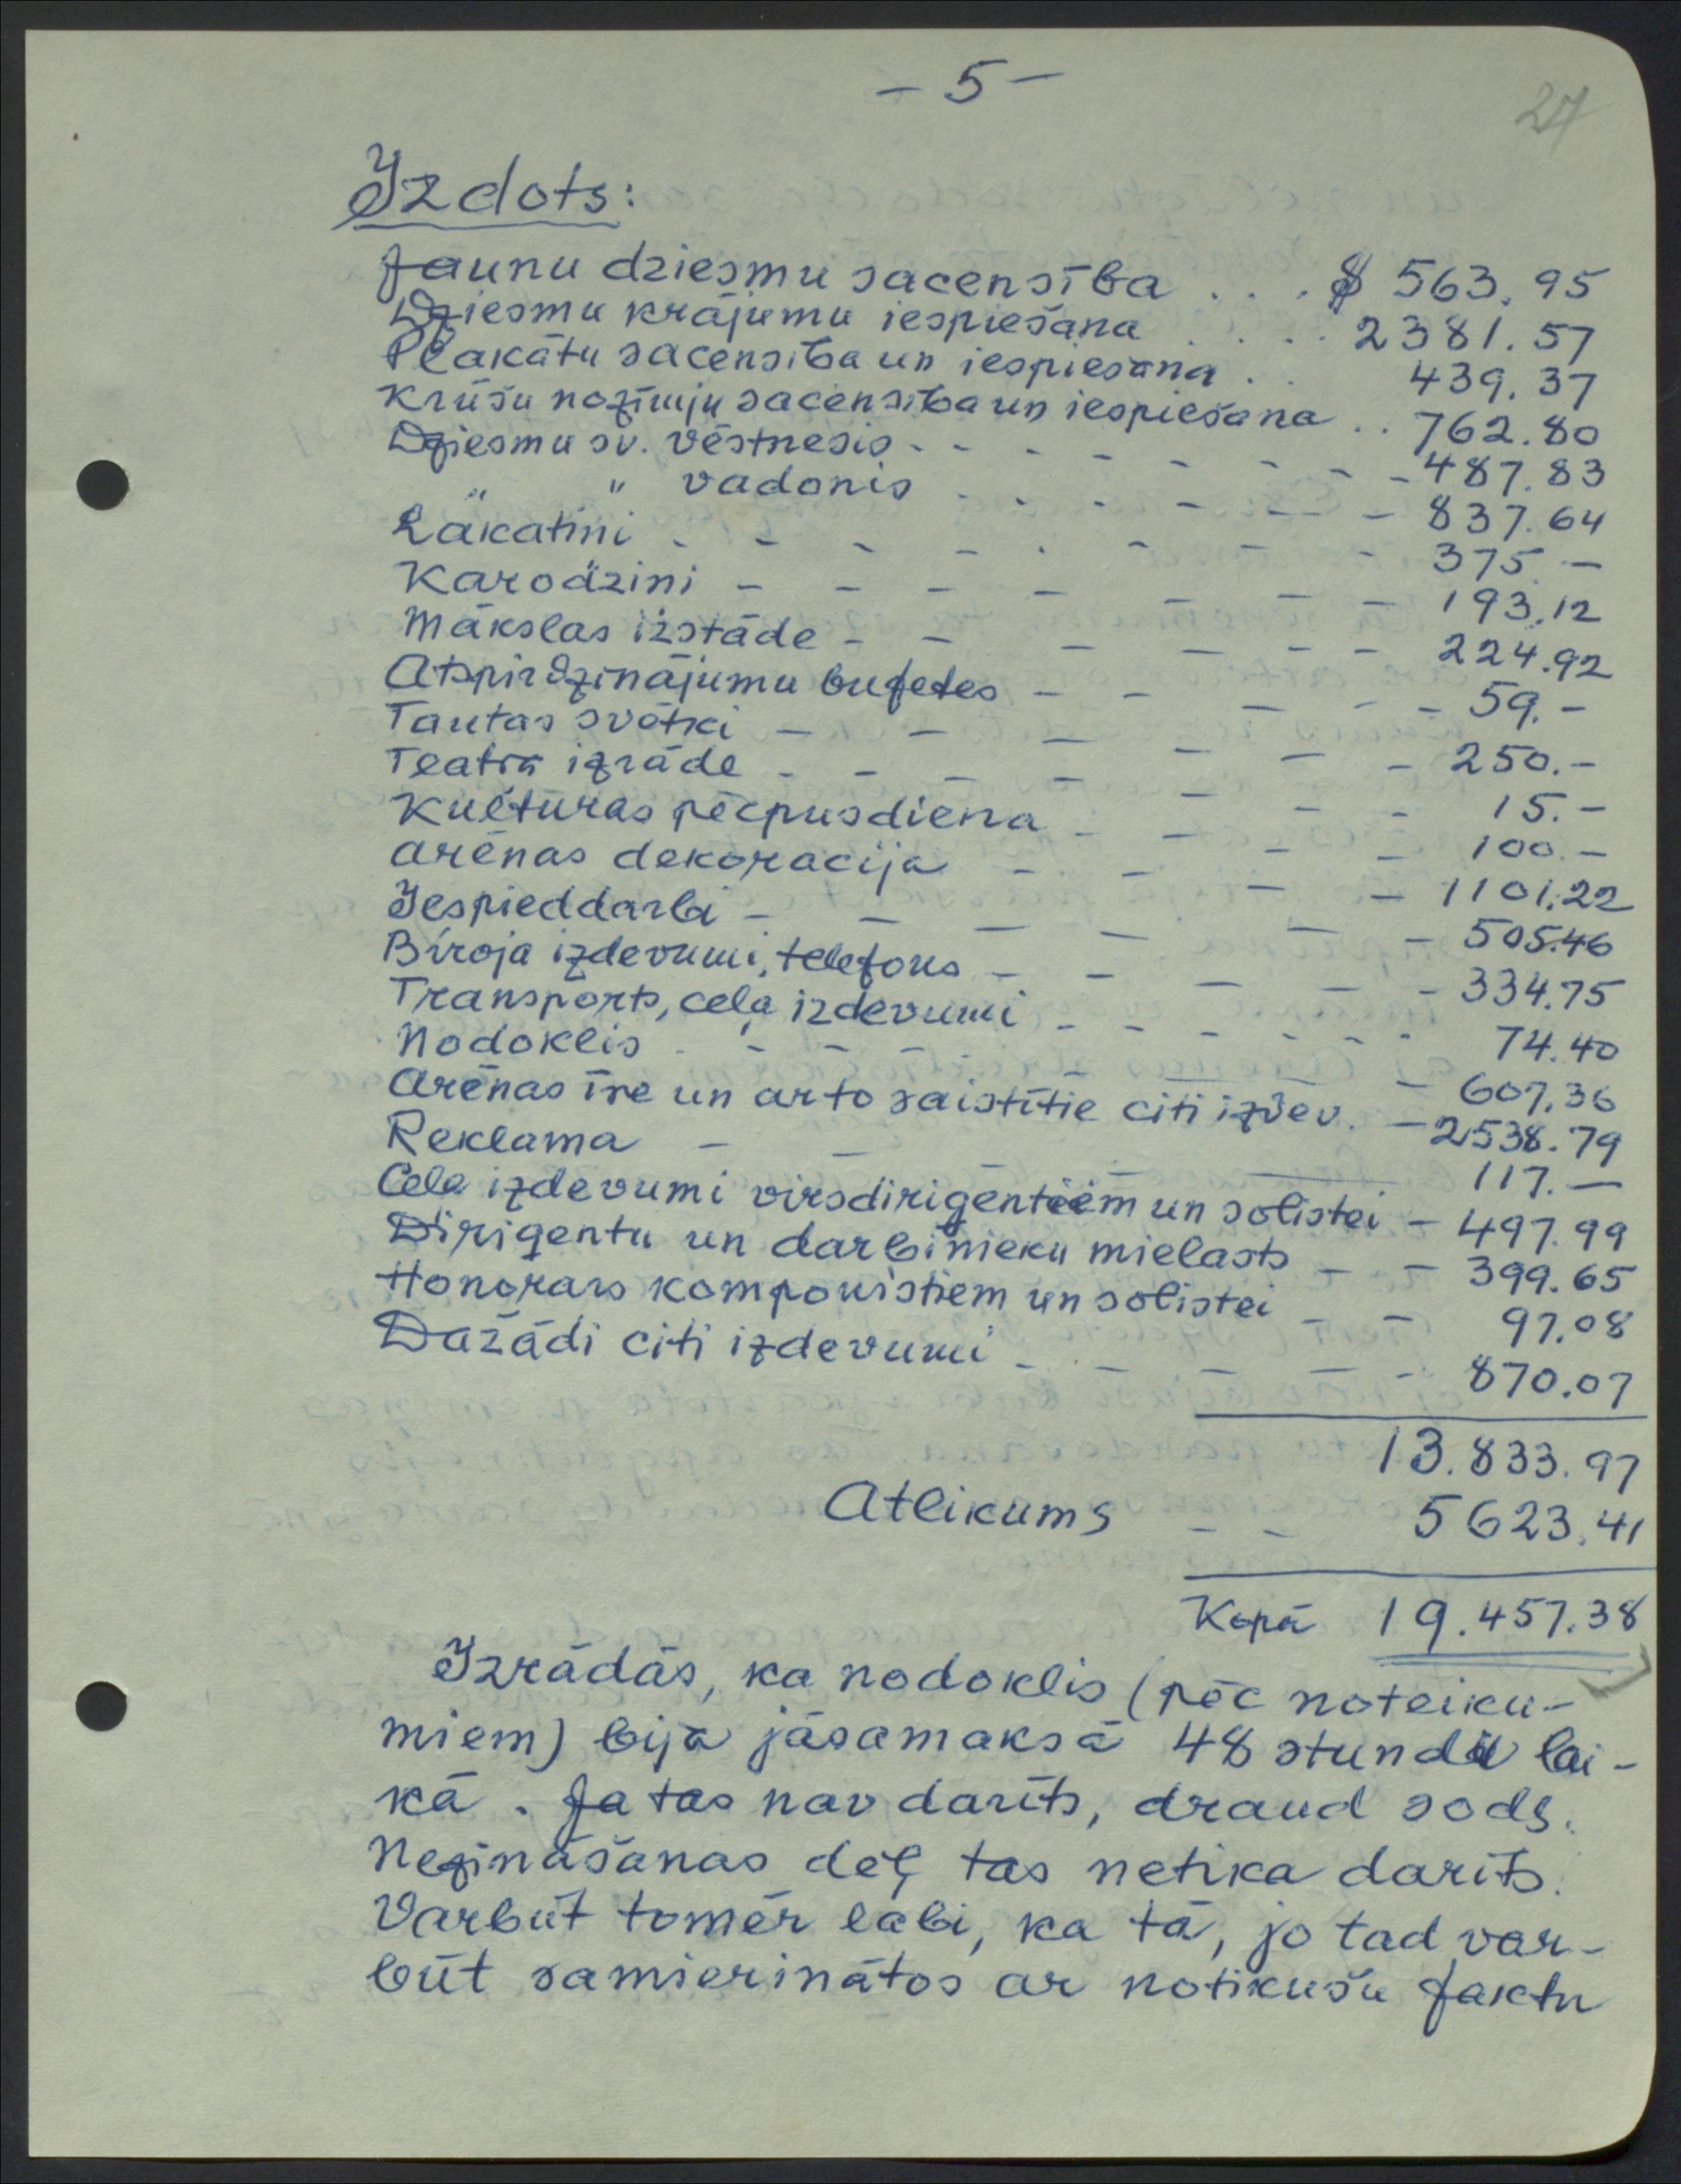 - 5 -
27
Izdots:
Jaunu dziesmu sacensība . . . $ 563.95
Dziesmu krājumu iespiešana . . . . 2381.57
Plakātu sacensība un iespiešana . . 439.37
Krūšu nozīmju sacensība un iespiešana . . 762.80
Dziesmu sv. vēstnesis - - - - - - - - 487.83
" " vadonis - - - - - - - 837.64
Lakatiņi - - - - - - - - 375.-
Karodziņi - - - - - - - 193.12
Mākslas izstāde - - - - - - 224.92
Atspirdzinājumu bufetes - - - - - 59.-
Tautas svētki - - - - - - 250.-
Teātra izrāde - - - - - - - 15.-
Kultūras pēcpusdiena - - - - 100.-
Arēnas dekorācija - - - - 1101.22
Iespieddarbi - - - - - - 505.46
Biroja izdevumi, telefons - - - - - 334.75
Transports, ceļa izdevumi - - - - - - 74.40
Nodoklis - - - - - - - 607.36
Arēnas īre un ar to saistītie citi izdev. - 2538.79
Reklama - - - - 117.-
Ceļa izdevumi virsdirigentiem un solistei - 497.99
Diriģentu un darbinieku mielasts - - 399.65
Honorārs komponistiem un solistei - - 97.08
Dažādi citi izdevumi - - - - - 870.07
13.833.97
Atlikums - - 5623.41
Kopā 19.457.38
Izrādās, ka nodoklis (pēc noteiku-
miem) bija jāsamaksā 48 stundu lai-
kā. Ja tas nav darīts, draud sods.
Nezināšanas dēļ tas netika darīts.
Varbūt tomēr labi, ka tā, jo tad var-
būt samierinātos ar notikušu faktu